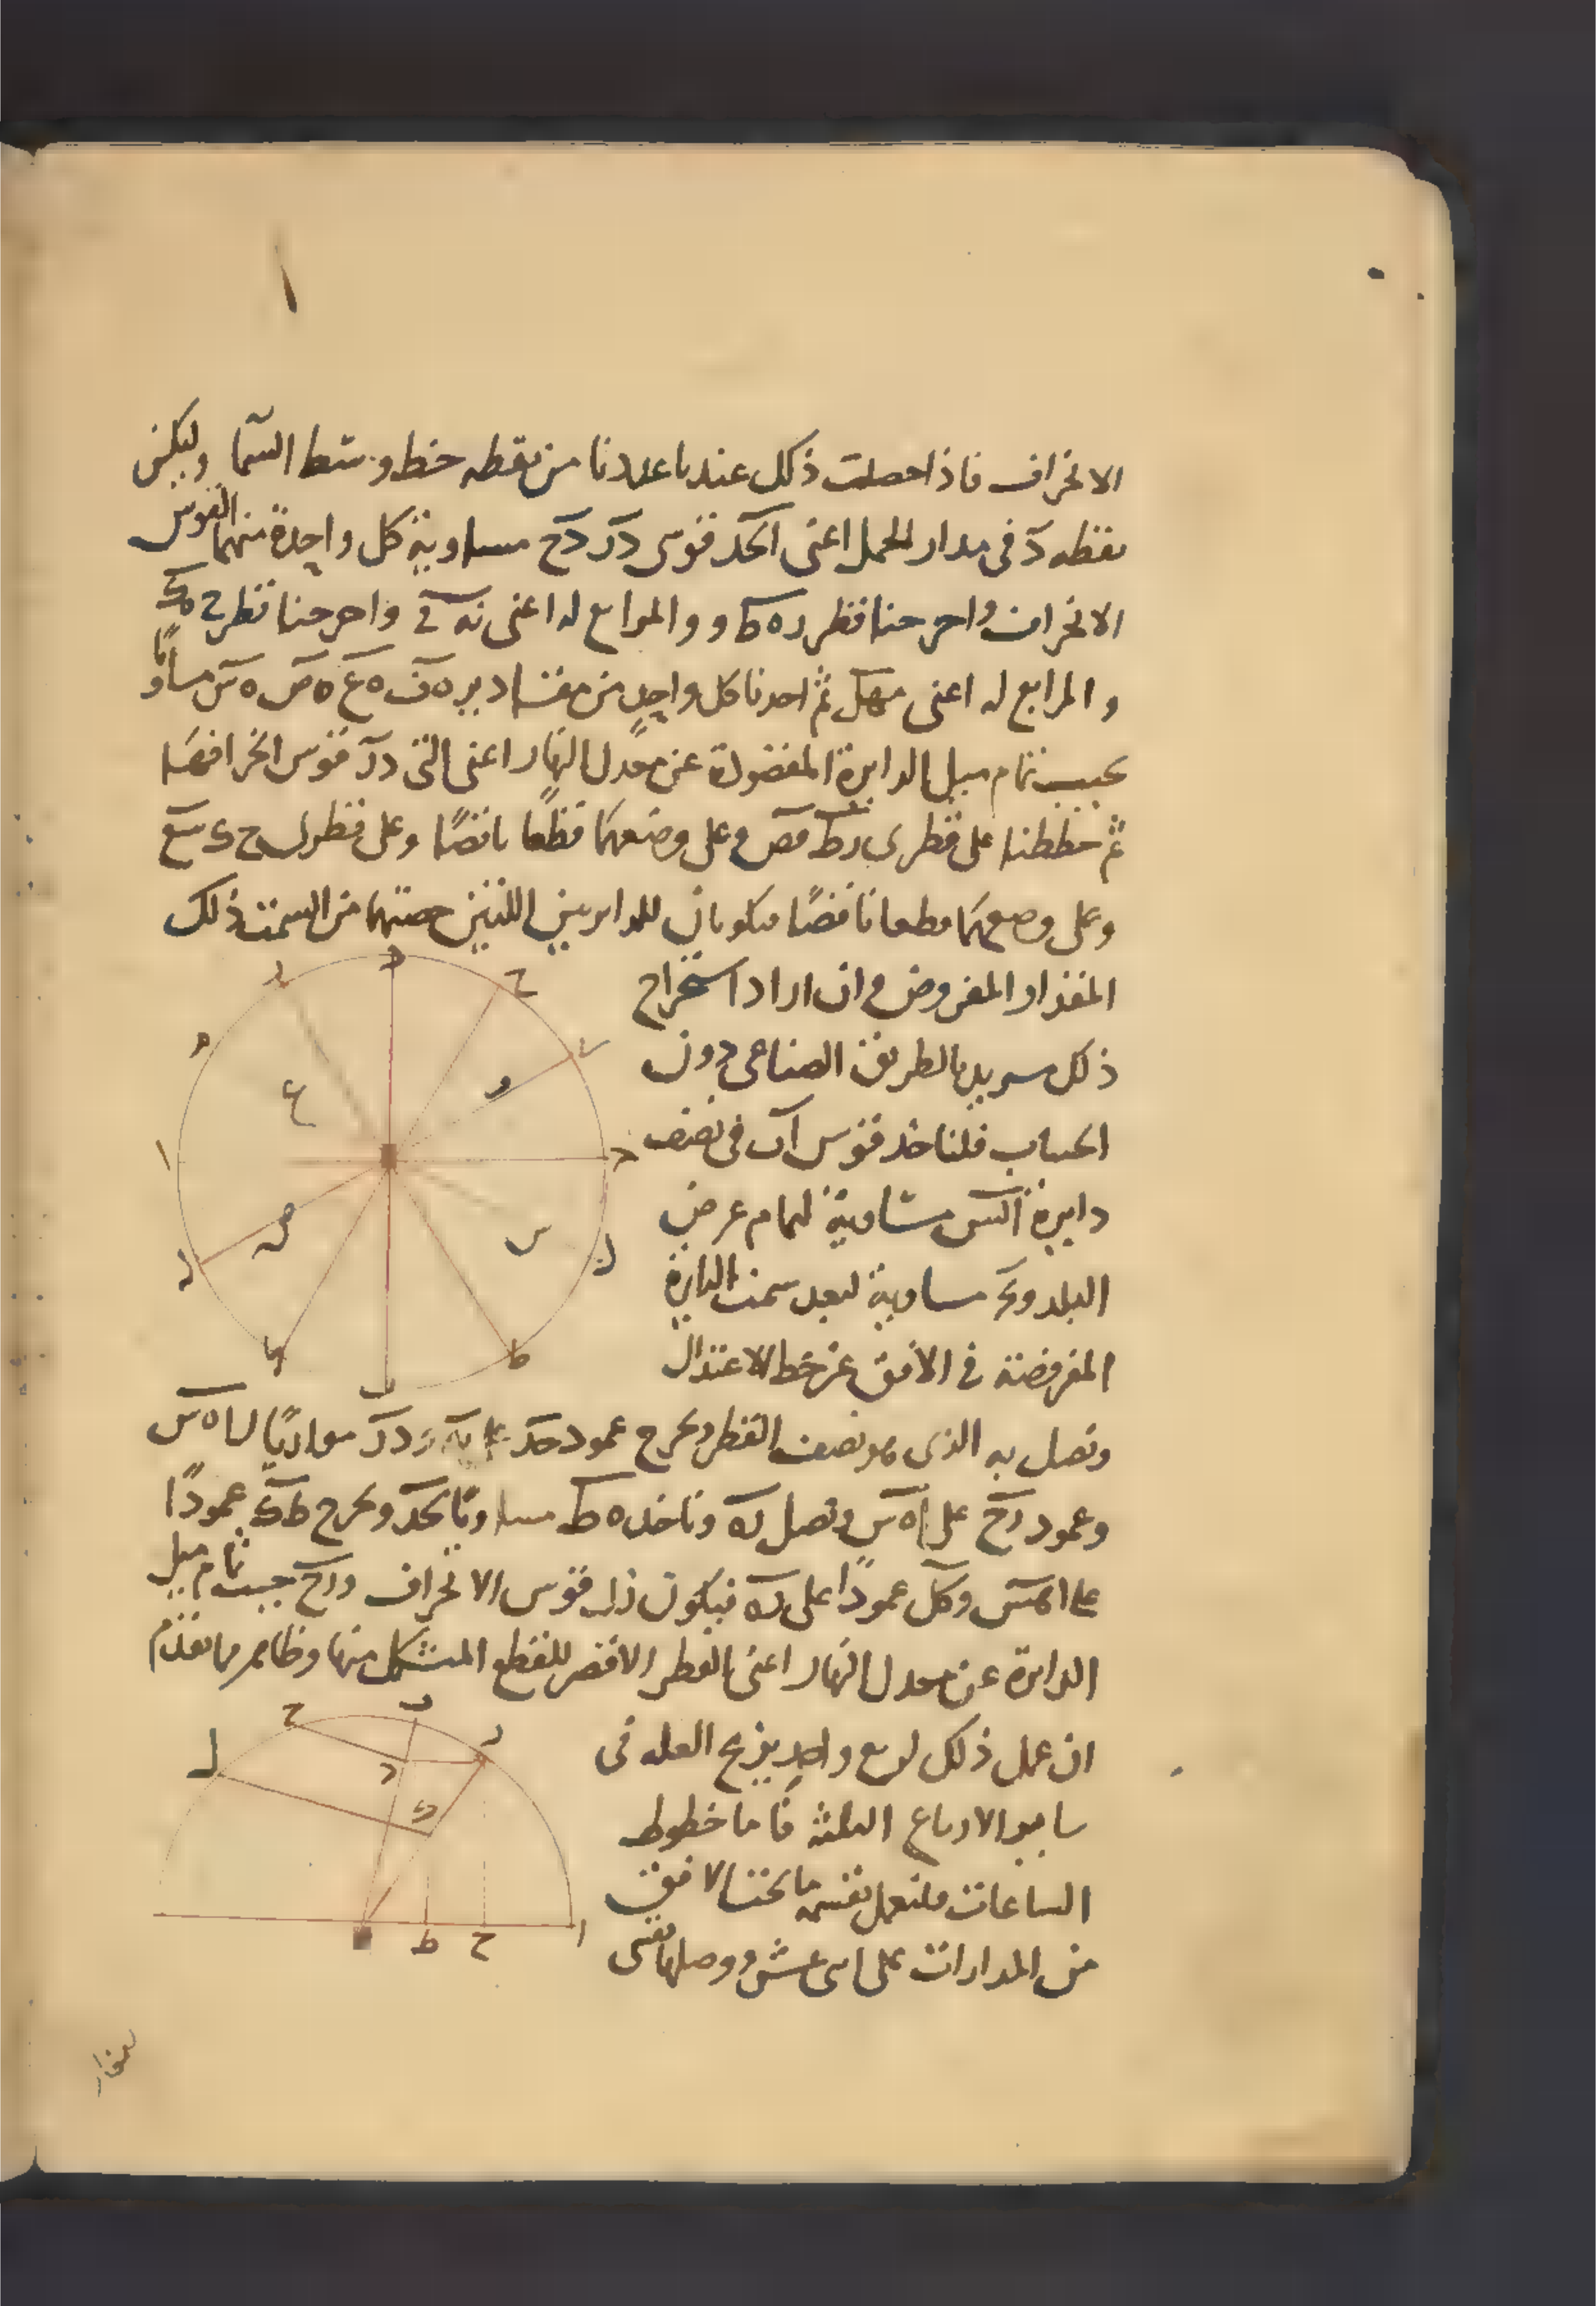 الانحراف فاذا حصلت ذلك عندنا عددنا من نقطه خط وسط السما وليكن
نقطه د في مدار الحمل اعنى ا ب ح د قوسى د ر د ح مساوية كل واحدة منهما القوس
الانحراف واخرجنا قطر ر ه ط و والمرابع له اعنى واخرجنا قطر ح ه ى
والمرابع له اعنى م ه ل ثم اخذنا كل واحد من مقادير ه ف ه ع ه ص ه س مساويًا
لجيب تمام ميل الدايرة المفضولة عن معدل النهار اعنى التى د ر قوس انحرافها
ثم خططنا على قطرى ر ط ف ص وعلى وضعهما قطعًا ناقصًا وعلى قطرى ح ى س ع
وعلى وضعهما قطعا ناقصًا فيكونان للدايرتين اللتين حصتهما من السمت ذلك
المقدار المفروض وان اراد استخراج
ذلك مريد بالطريق الصناعى دون
الحساب فلناخذ قوس ا ب فى نصف
دايرة ا ب س مساوية لتمام عرض
البلد و ب ح مساوية لبعد سمت الدايرة
المفروضة فى الافق عن خط الاعتدال
ونصل ب ه الذى هو نصف القطر ونخرج عمود ح د على ب ه و د ر موازيًا لـ ا ه س
وعمود ر ح على ا ه س ونصل ر ه وناخذ ه ط مساويًا لـ ح د ونخرج ط ك عمودًا
على ا ه س و ك ل عمودًا على ر ه فيكون ر ل قوس الانحراف و ر ح جيب تمام ميل
الدايرة عن معدل النهار اعنى القطر الاقصر للقطع المتشكل منها وظاهر مما تقدم
ان عمل ذلك لربع واحد يزيح العله فى
ساير الارباع الثلثة فاما خطوط
الساعات فلنعمل بقسمة ما تحت الافق
من المدارات على اثنى عشر ووصلها بقسى